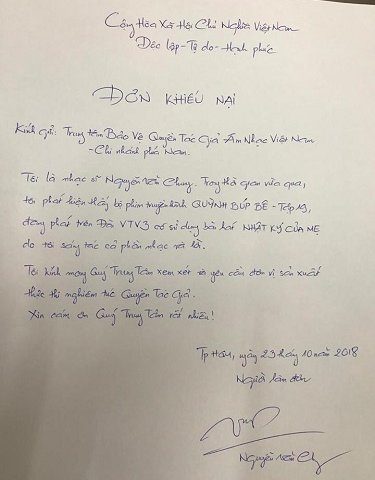 Cộng Hòa Xã Hội Chủ Nghĩa Việt Nam
Độc lập - Tự do - Hạnh phúc
ĐƠN KHIẾU NẠI
Kính gửi: Trung tâm Bảo Vệ Quyền Tác Giả Âm Nhạc Việt Nam
- Chi nhánh phía Nam.
Tôi là nhạc sĩ Nguyễn Văn Chung. Trong thời gian vừa qua,
tôi phát hiện thấy bộ phim truyền hình QUỲNH BÚP BÊ - Tập 19,
đang phát trên Đài VTV3 có sử dụng bài hát NHẬT KÝ CỦA MẸ
do tôi sáng tác cả phần nhạc và lời.
Tôi kính mong Quý Trung Tâm xem xét và yêu cầu đơn vị sản xuất
thực thi nghiêm túc Quyền Tác Giả.
Xin cảm ơn Quý Trung Tâm rất nhiều!
Tp HCM, ngày 23 tháng 10 năm 2018
Người làm đơn
Nguyễn Văn Chung